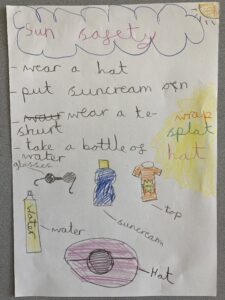 Sun safety
- wear a hat
- put suncream on
- wear a te-
shurt
- take a bottle of
water
wrap
splat
hat
glasses
top
suncream
water
water
Hat